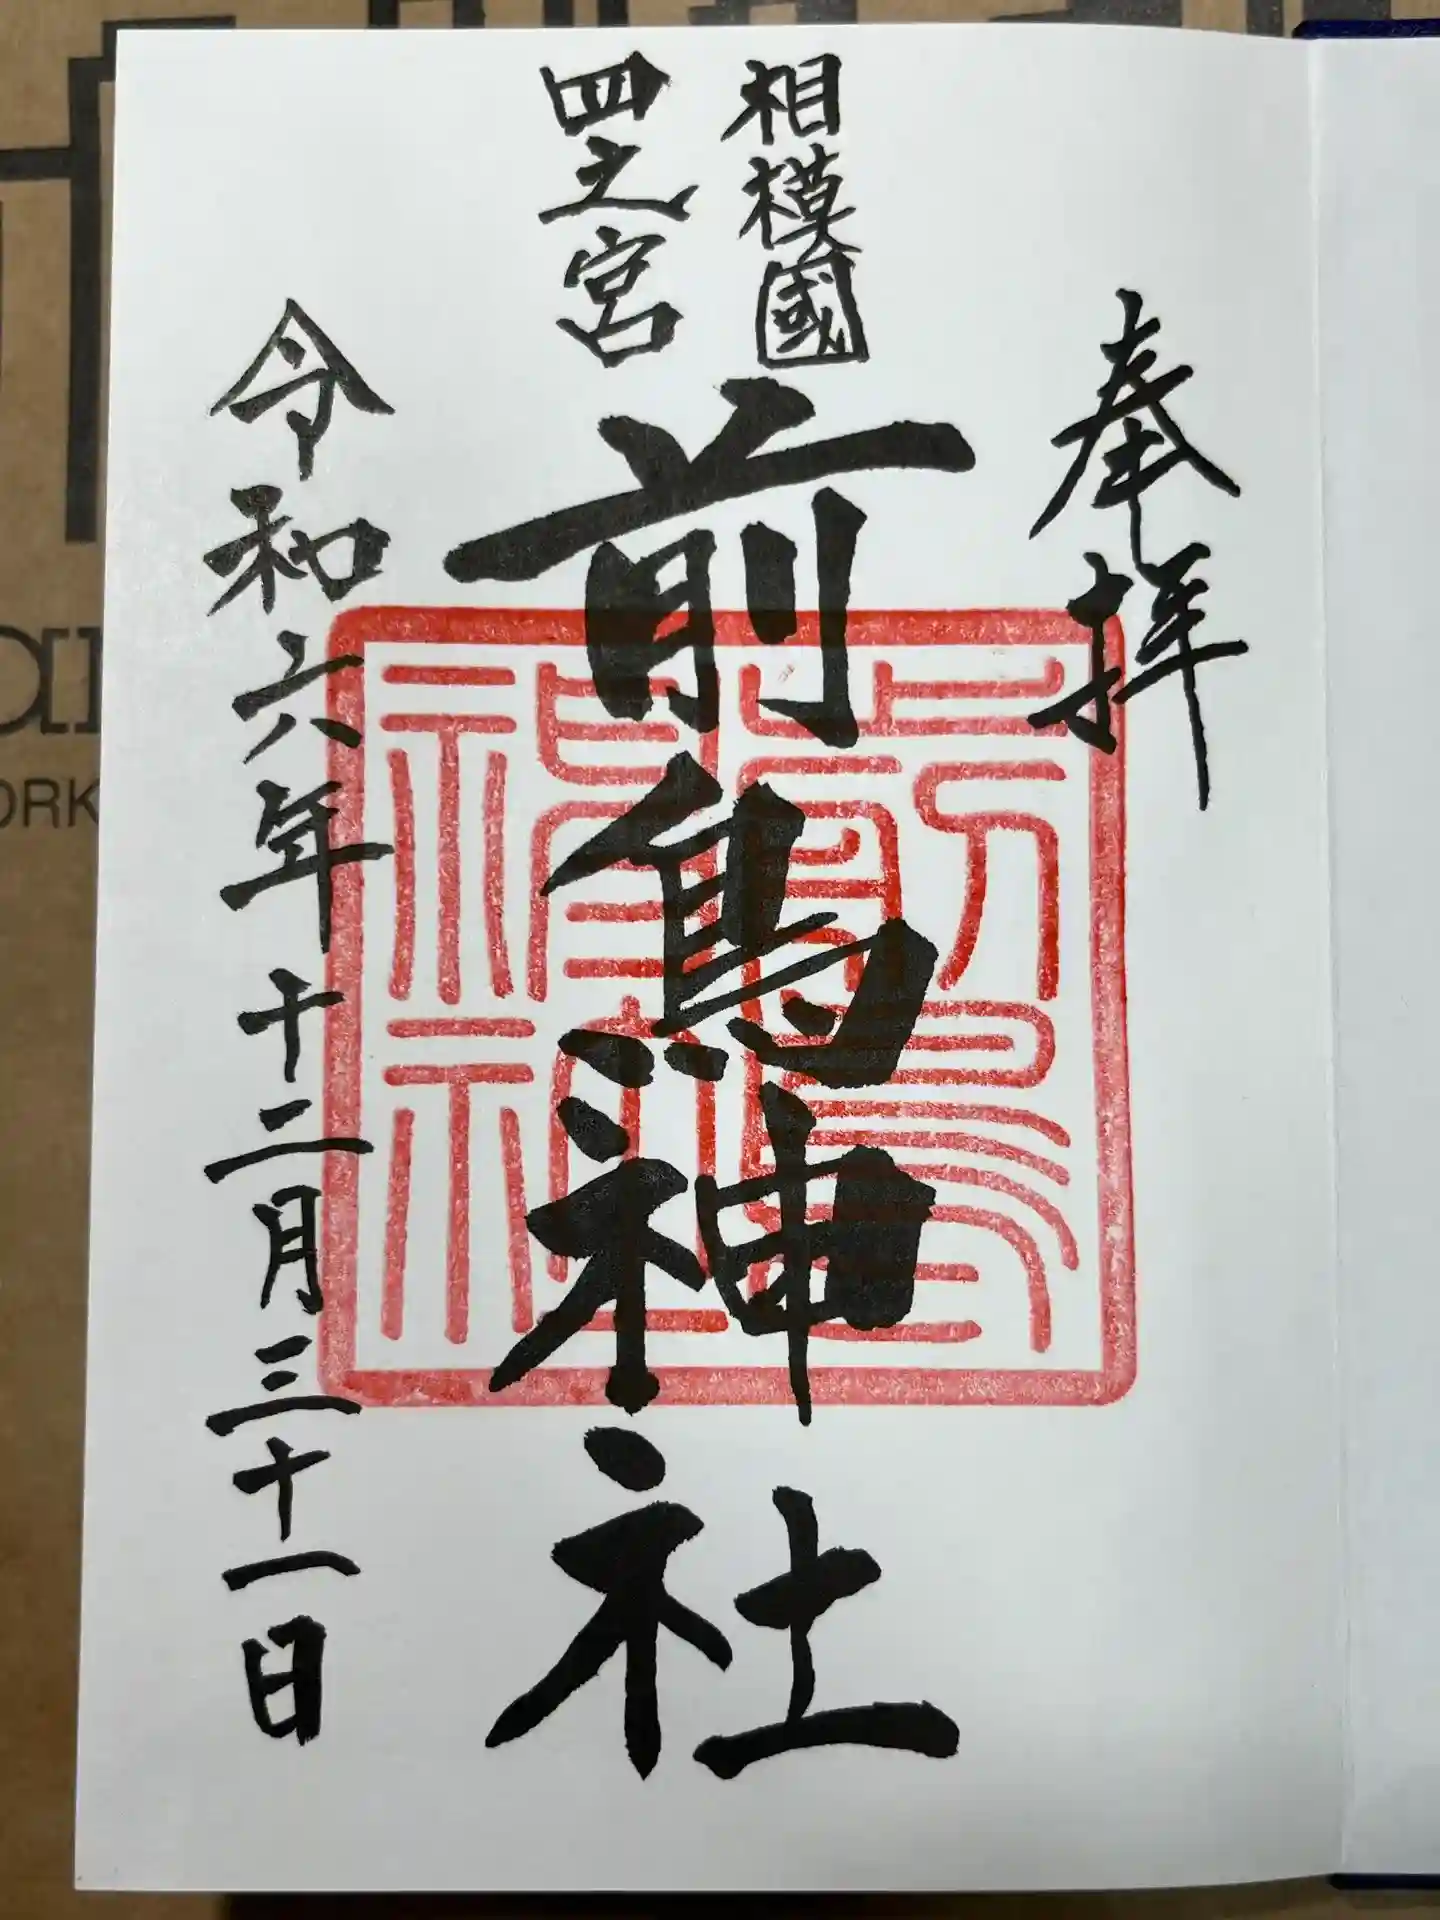 奉拝
相模國
四之宮
前鳥神社
令和六年十二月三十一日
ORK